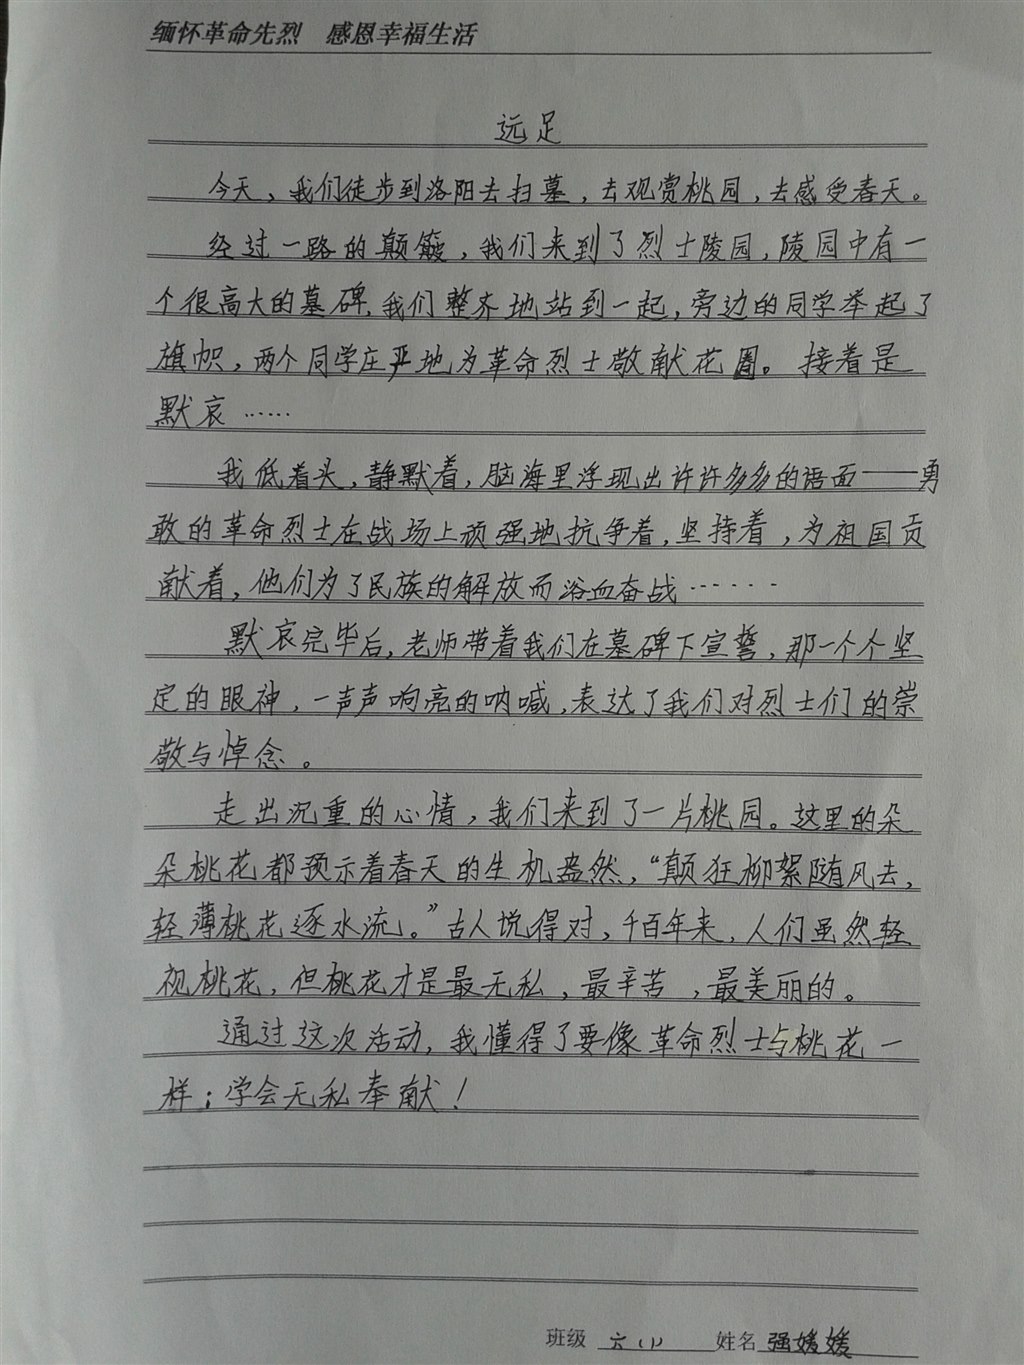 缅怀革命先烈　感恩幸福生活
远足
今天，我们徒步到洛阳去扫墓，去观赏桃园，去感受春天。
经过一路的颠簸，我们来到了烈士陵园，陵园中有一
个很高大的墓碑，我们整齐地站到一起，旁边的同学举起了
旗帜，两个同学庄严地为革命烈士敬献花圈。接着是
默哀……
我低着头，静默着，脑海里浮现出许许多多的画面——勇
敢的革命烈士在战场上顽强地抗争着，坚持着，为祖国贡
献着，他们为了民族的解放而浴血奋战……
默哀完毕后，老师带着我们在墓碑下宣誓，那一个个坚
定的眼神，一声声响亮的呐喊，表达了我们对烈士们的崇
敬与悼念。
走出沉重的心情，我们来到了一片桃园。这里的朵
朵桃花都预示着春天的生机盎然，“颠狂柳絮随风去，
轻薄桃花逐水流。”古人说得对，千百年来，人们虽然轻
视桃花，但桃花才是最无私，最辛苦，最美丽的。
通过这次活动，我懂得了要像革命烈士与桃花一
样；学会无私奉献！
班级 六（1） 姓名 强媛媛